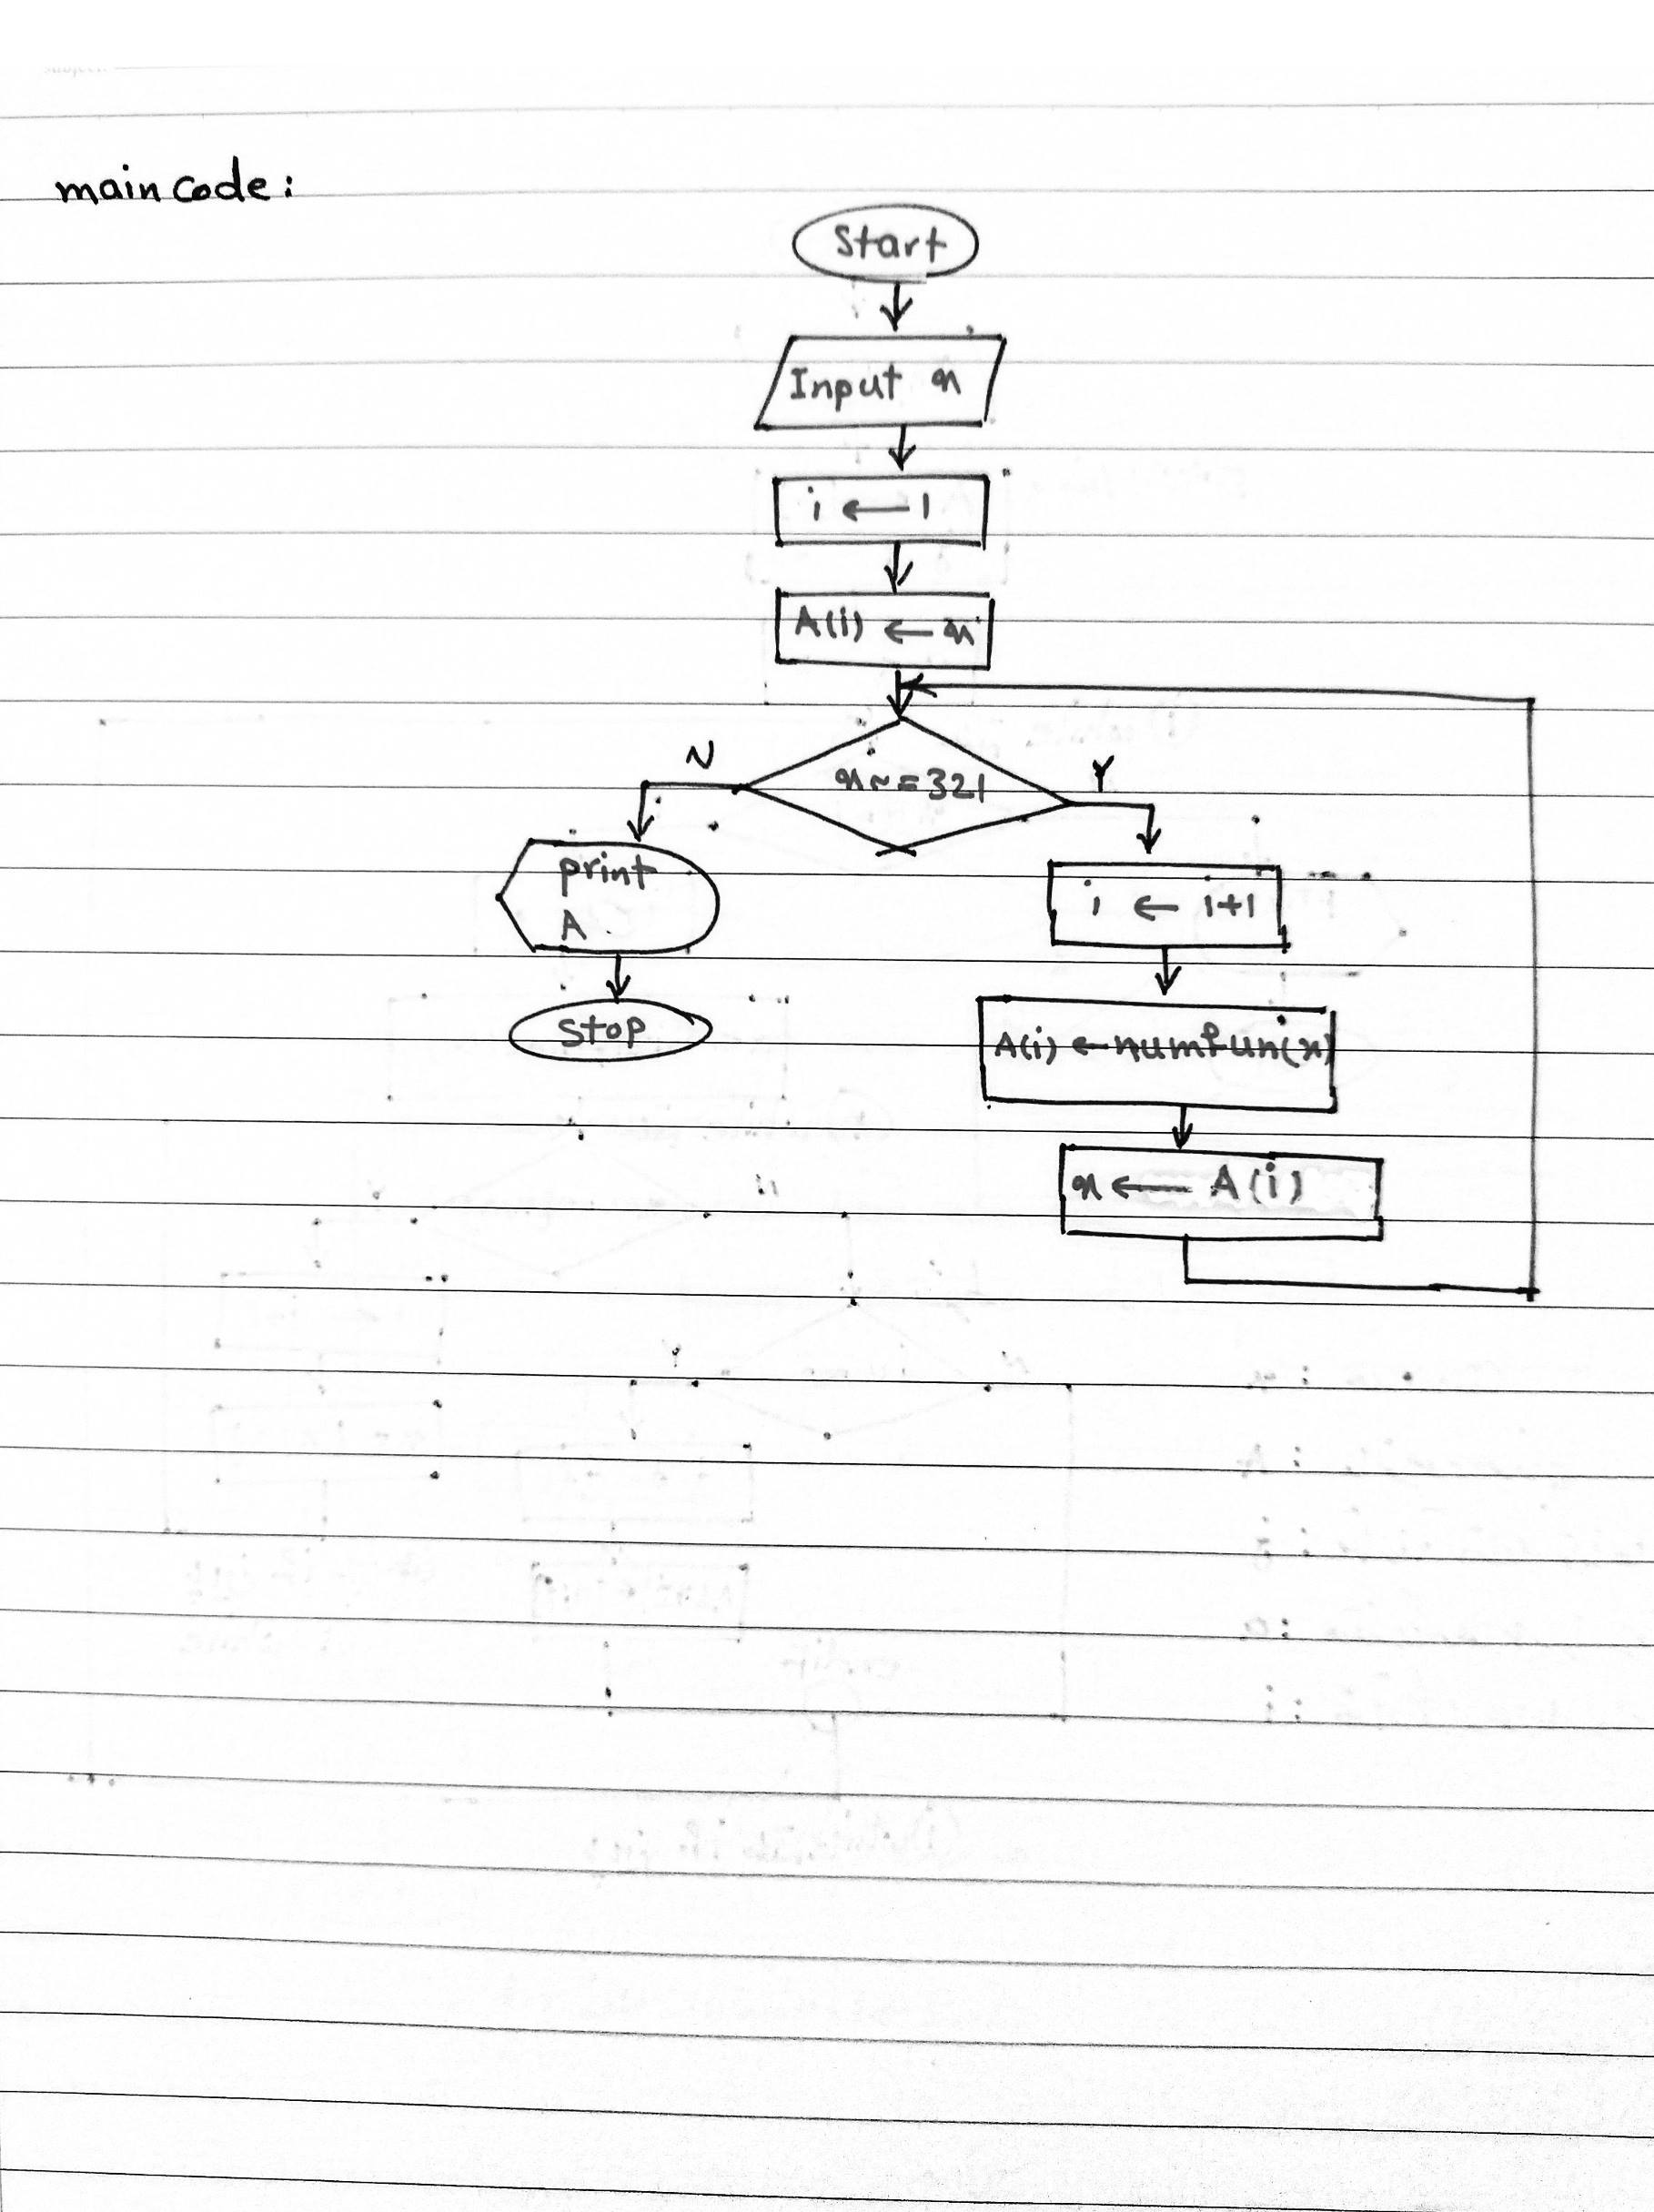 main code:
Start
Input x
i ← 1
A(i) ← x
x ~ = 321
N
Y
print
A
Stop
i ← i+1
A(i) ← numfun(x)
x ← A(i)